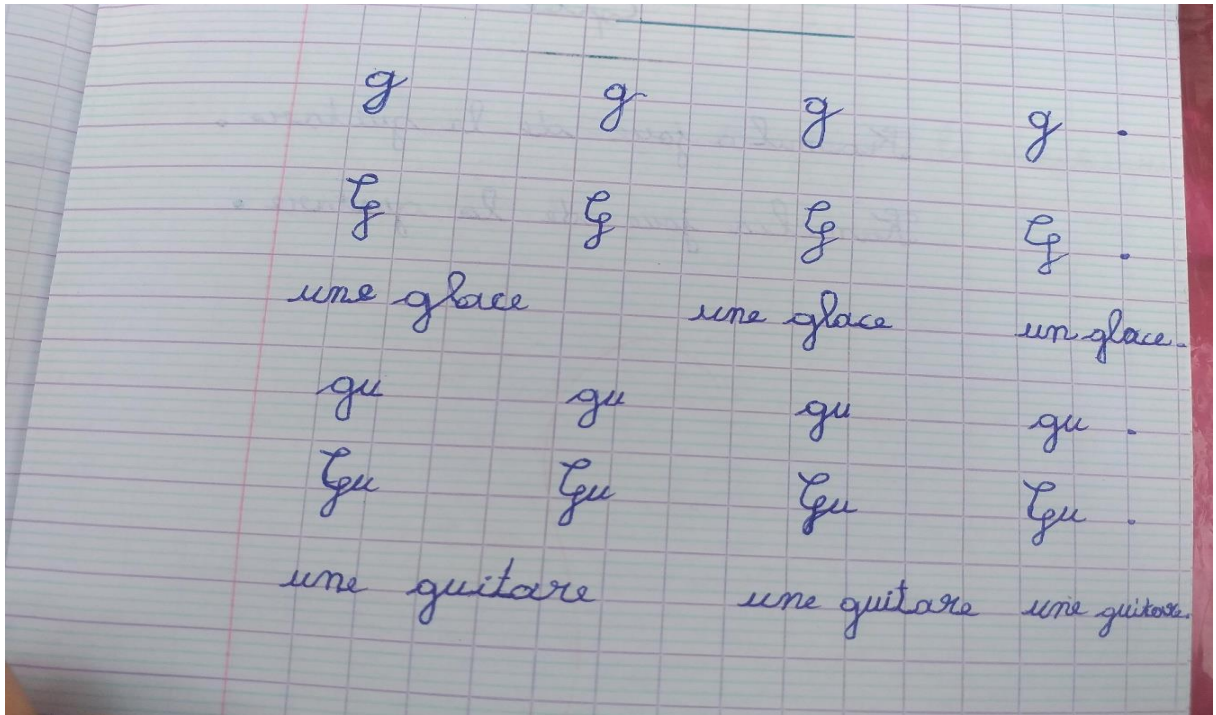 g g g g .
G G G G .
une glace une glace un glace.
gu gu gu gu .
Gu Gu Gu Gu .
une guitare une guitare une guitare.